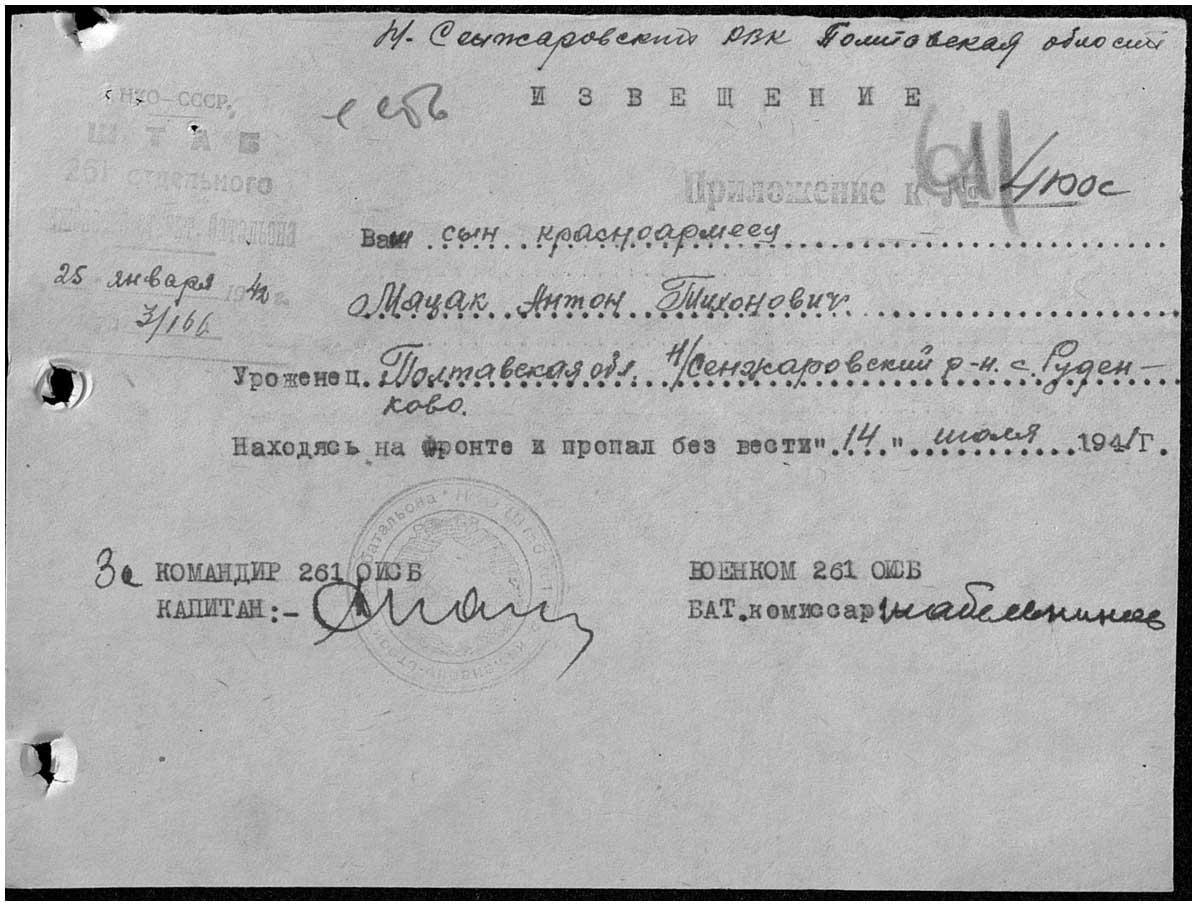 Н. Сенжаровский РВК Полтавская области
НКО-СССР.
ШТАБ
261 отдельного
25 января 1942 г.
3/166
есть
ИЗВЕЩЕНИЕ
Приложение к № 4100с
Ваш сын красноармеец
Мацак Антон Тихонович
Уроженец Полтавская обл. Н/Сенжаровский р-н. с. Руден-
ково.
Находясь на фронте и пропал без вести "14" июля 1941 Г.
За КОМАНДИР 261 ОИСБ
КАПИТАН:-
ВОЕНКОМ 261 ОИСБ
БАТ.комиссар